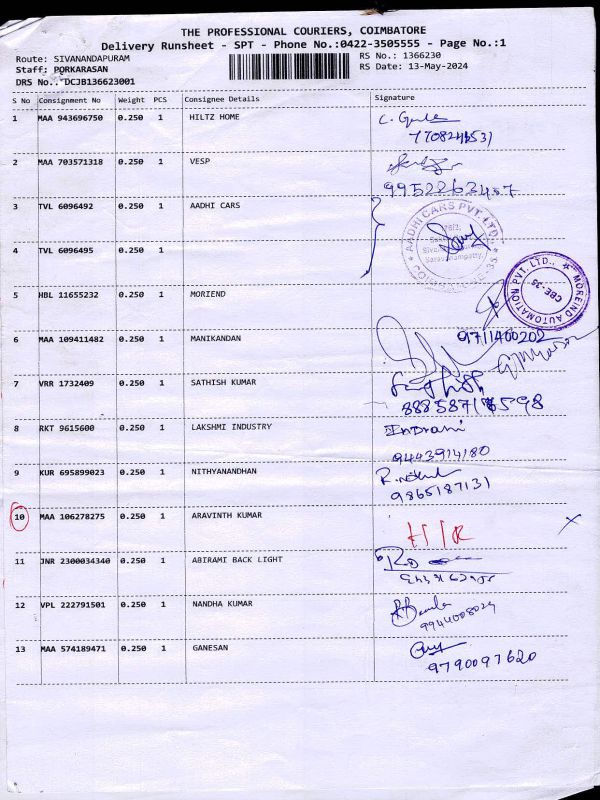 THE PROFESSIONAL COURIERS, COIMBATORE
Delivery Runsheet - SPT - Phone No.:0422-3505555 - Page No.:1
Route: SIVANANDAPURAM
RS No.: 1366230
Staff: PORKARASAN
RS Date: 13-May-2024
DRS No.: DCJB136623001
S No Consignment No Weight PCS Consignee Details Signature
1 MAA 943696750 0.250 1 HILTZ HOME
2 MAA 703571318 0.250 1 VESP
3 TVL 6096492 0.250 1 AADHI CARS
AADHI CARS PVT. LTD.
4 TVL 6096495 0.250 1
MOREIND AUTOMATION PVT. LTD.,
CBE-35
5 HBL 11655232 0.250 1 MORIEND
6 MAA 109411482 0.250 1 MANIKANDAN 9711400202
7 VRR 1732409 0.250 1 SATHISH KUMAR
8 RKT 9615600 0.250 1 LAKSHMI INDUSTRY Indrani
9443914180
9 KUR 695899023 0.250 1 NITHYANANDHAN
9865187131
10 MAA 106278275 0.250 1 ARAVINTH KUMAR
11 JNR 2300034340 0.250 1 ABIRAMI BACK LIGHT
12 VPL 222791501 0.250 1 NANDHA KUMAR
9944008024
13 MAA 574189471 0.250 1 GANESAN
9790097620